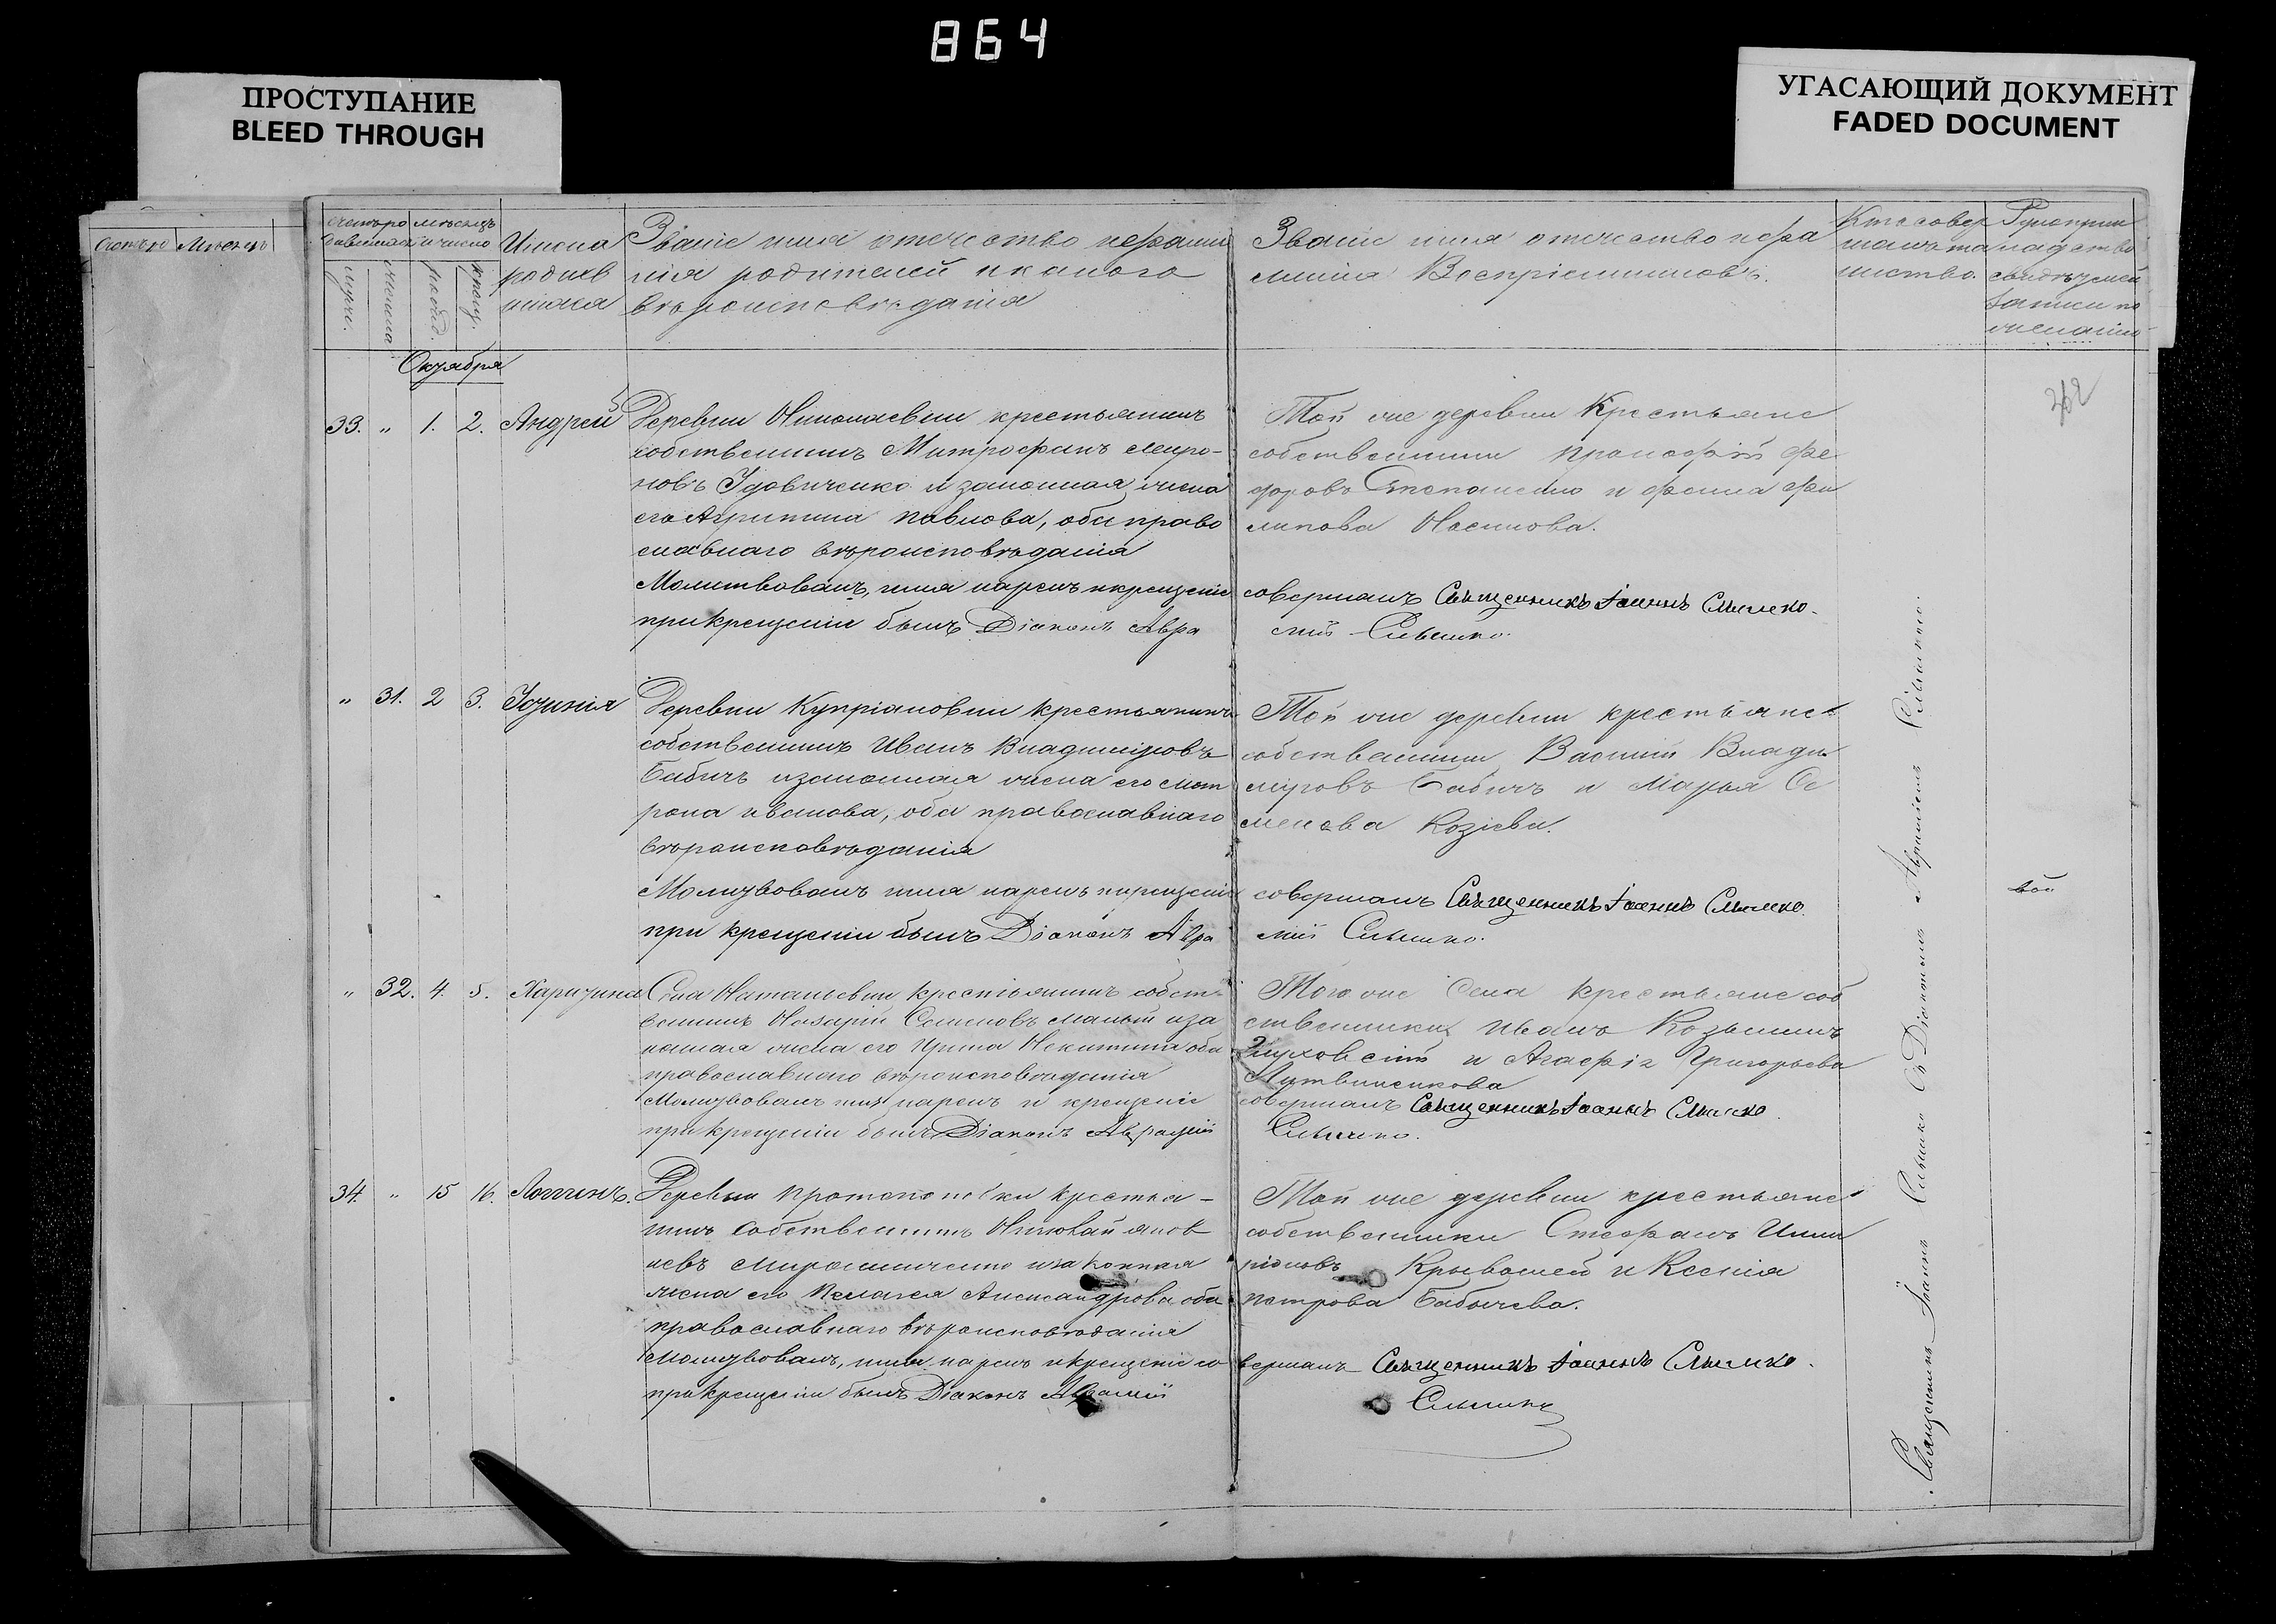 864
ПРОСТУПАНИЕ
BLEED THROUGH
УГАСАЮЩИЙ ДОКУМЕНТ
FADED DOCUMENT
Мѣсяцъ
Счетъ ро мѣсяцъ
и число
Имена
родив
шихся
Званіе имя отечество и фами
лія родителей и какого
вѣроисповѣданія
Званіе имя отечество и фа
милія Воспріемниковъ.
Кто совер
шалъ та
инство.
Рукопри
кладство
свидѣтелей
записи по
желанію
Октября
362
33. " 1. 2. Андрей
Деревни Николаевки крестьянинъ
собственникъ Митрофанъ Миро-
новъ Удовиченко и законная жена
его Агрипина Павлова, оба право
славнаго вѣроисповѣданія
Молитвовалъ, имя нарекъ и крещеніе
при крещеніи былъ Діаконъ Авра
Той же деревни Крестьяне
собственники Прокофій Фе
доровъ Степаненко и Фекла Фи
липова Носикова.
совершалъ Священникъ Іоаннъ
мій Сильченко.
" 31. 2 3. Іустинія
Деревни Купріановки крестьянинъ
собственникъ Иванъ Владиміровъ
Бабичъ и законная жена его Мат
рона Иванова, оба православнаго
вѣроисповѣданія
Молитвовалъ имя нарекъ и крещеніе
при крещеніи былъ Діаконъ Авра
Той же деревни крестьяне
собственники Василій Влади
міровъ Бабичъ и Марья Се
менова Козіева.
совершалъ Священникъ Іоаннъ
мій Сильченко.
" 32. 4. 5. Харитина
Села Натальевки крестьянинъ собст
венникъ Назарій Семеновъ Малый и за
конная жена его Ирина Никитина оба
православнаго вѣроисповѣданія
Молитвовалъ имя нарекъ и крещеніе
при крещеніи былъ Діаконъ Аврамій
Того же Села крестьяне соб
ственники Иванъ Козьминъ
Глуховскій и Агафія Григорьева
Литвиненкова
совершалъ Священникъ Іоаннъ
Сильченко.
34. " 15 16. Логгинъ.
Деревни Протопоповки крестья-
нинъ собственникъ Николай Яков
левъ Мирошниченко и законная
жена его Пелагея Александрова оба
православнаго вѣроисповѣданія
Молитвовалъ, имя нарекъ и крещеніе со
при крещеніи былъ Діаконъ Аврамій
Той же деревни крестьяне
собственники Стефанъ
Кривошей и Ксенія
Петрова Бабичева.
вершалъ Священникъ Іоаннъ
Сильченко
Священникъ Іоаннъ съ Діакономъ Авраміемъ